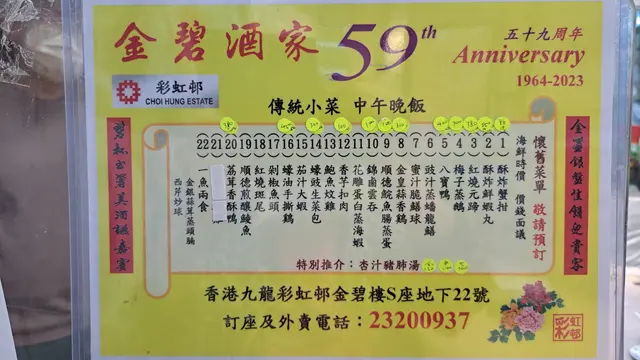 金碧酒家 59th 五十九周年
Anniversary
1964-2023
彩虹邨
CHOI HUNG ESTATE
傳統小菜 中午晚飯
懷舊菜單 敬請預訂
海鮮時價 價錢面議
1 酥炸蟹拑
2 酥炸鮮蝦丸
3 紅燒元蹄
4 梅子蒸鵝
5 八寶鴨
6 豉汁蒸蟠龍鱔
7 蜜汁脆鱔球
8 金皇蒜香雞
9 順德鯇魚腸蒸蛋
10 錦鹵雲吞
11 花雕蛋白蒸海蝦
12 香芋扣肉
13 鮑魚炆雞
14 蠔豉生菜包
15 茄汁大蝦
16 蠔油手撕雞
17 剁椒魚頭
18 紅燒斑尾
19 順德煎釀鯪魚
20 荔茸香酥鴨
21
22 一魚兩食
金銀蒜茸蒸頭腩
西芹炒球
特別推介：杏汁豬肺湯
香港九龍彩虹邨金碧樓S座地下22號
訂座及外賣電話：23200937
彩虹邨